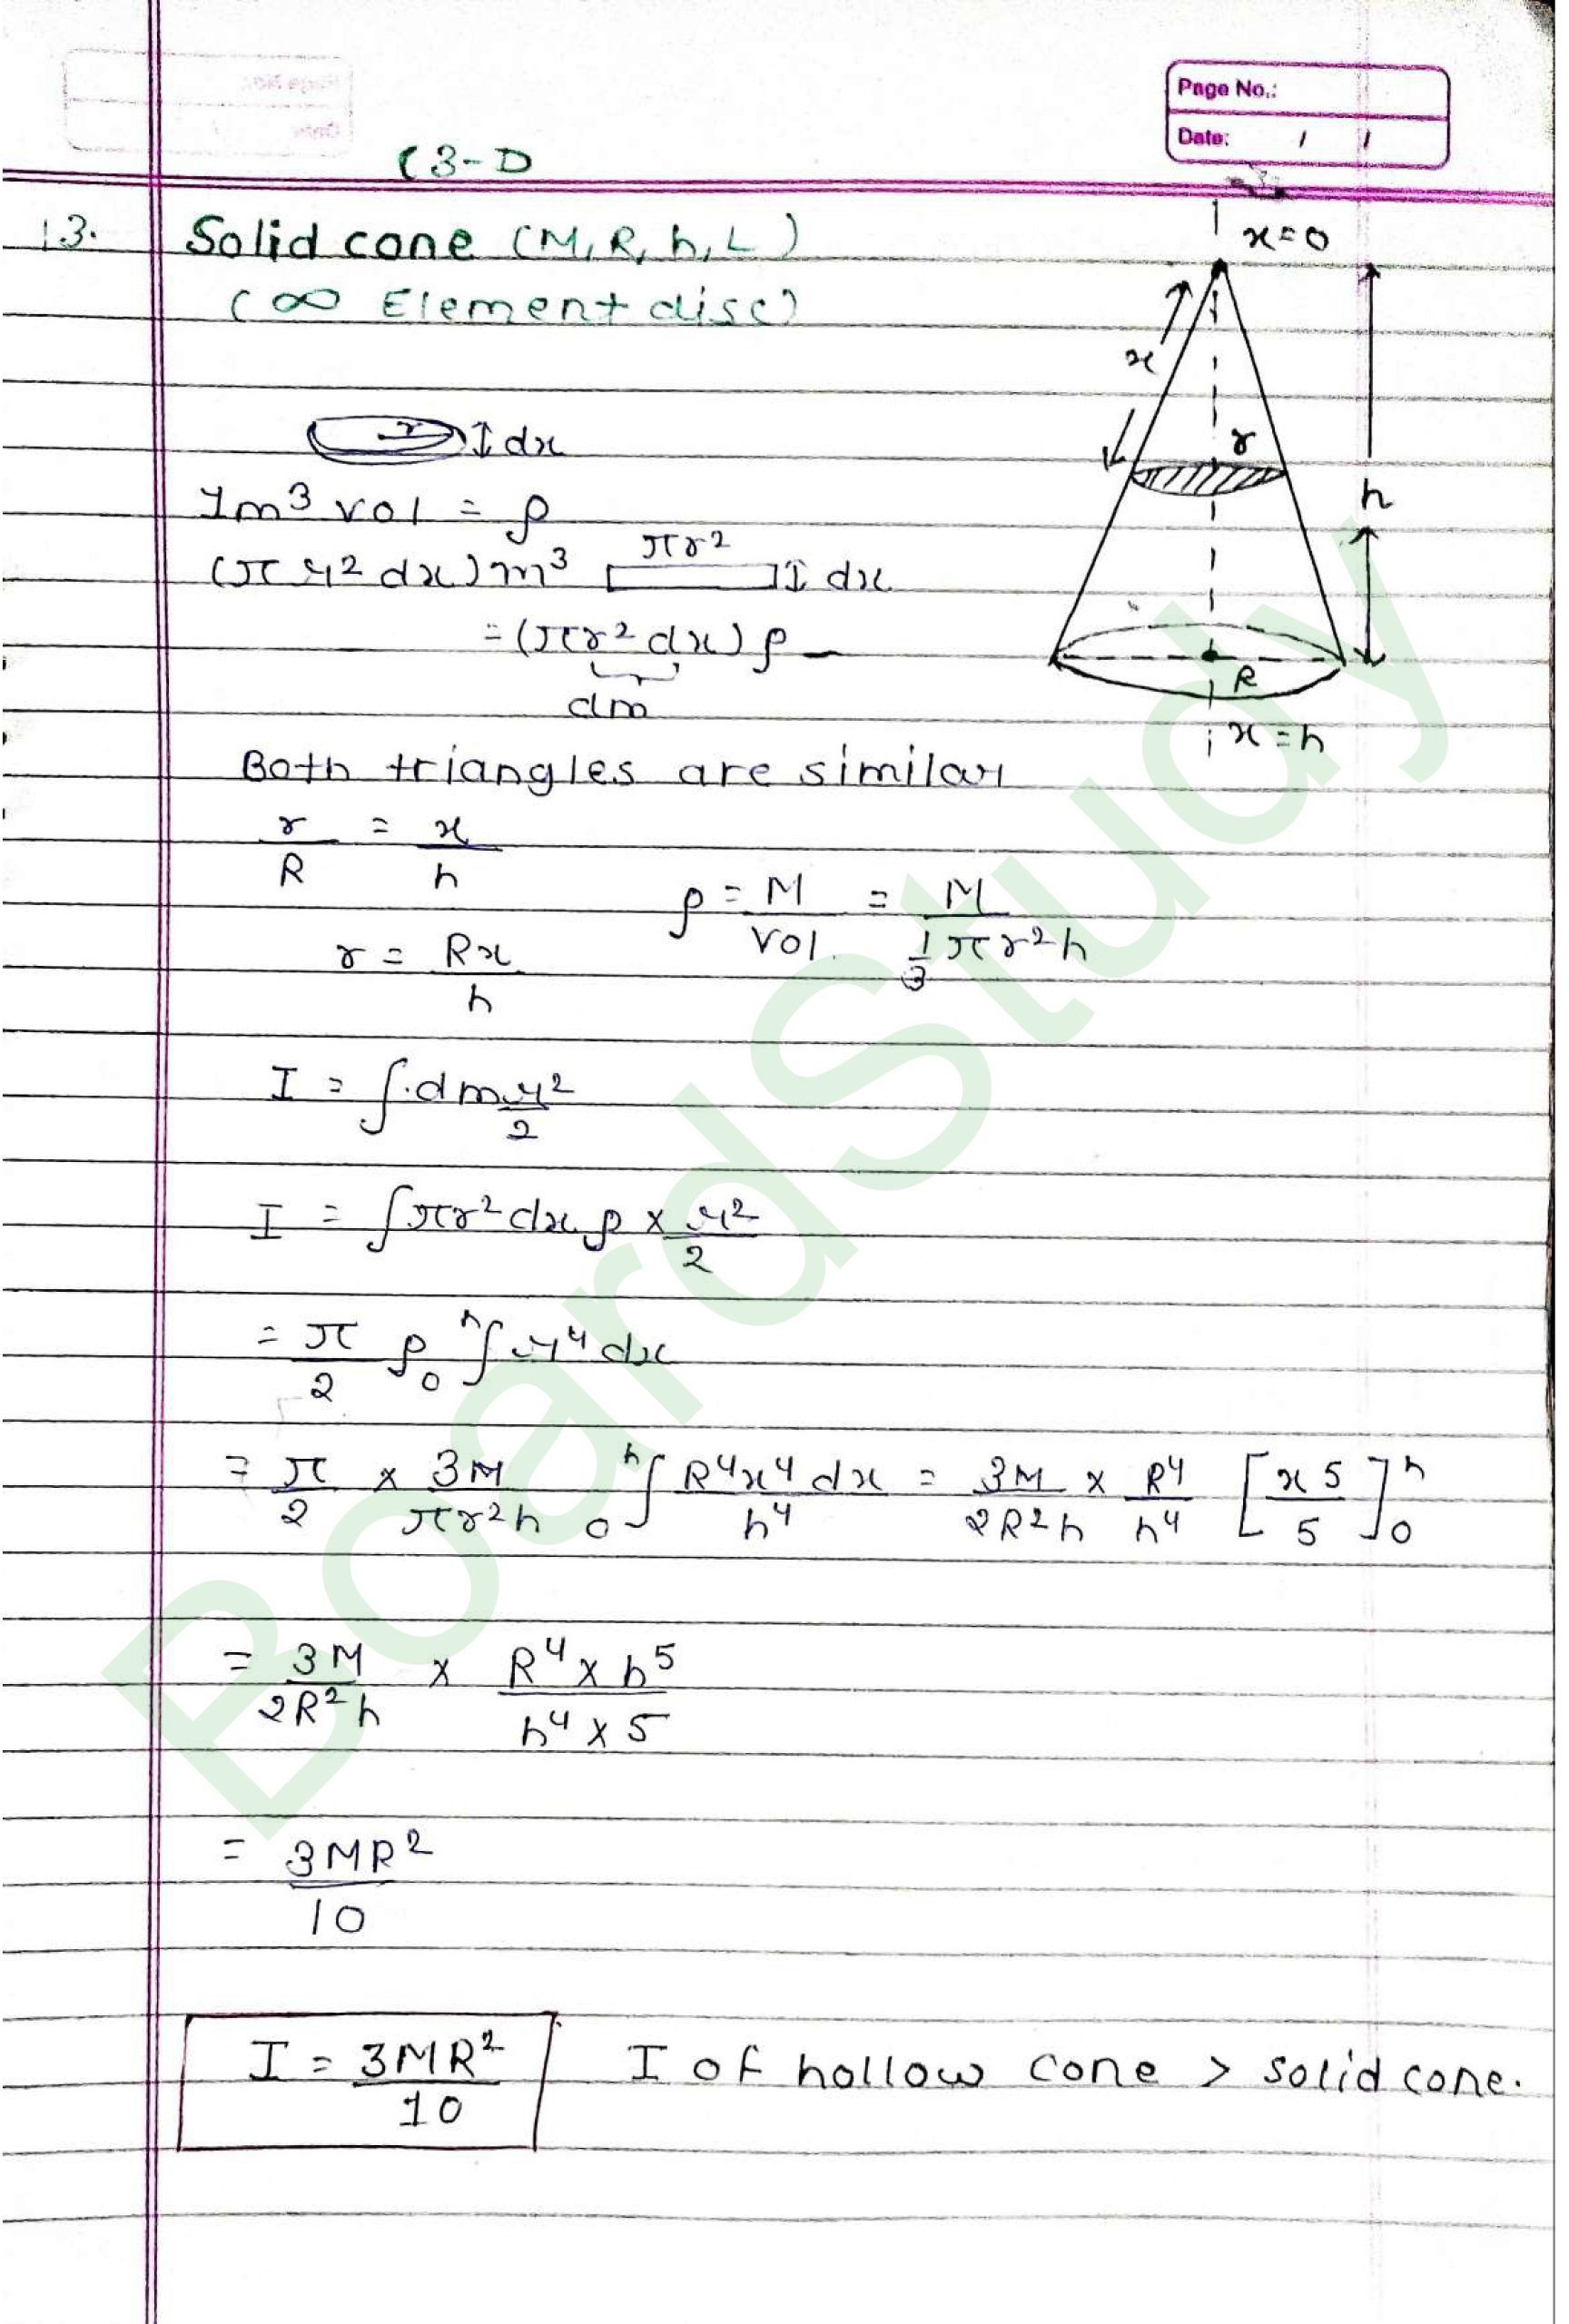 Page No.:
Date: / /
(3-D
13. Solid cone (M, R, h, L)
(∞ Element disc)
x=0
x
r
h
R
x=h
r dx
1m³ vol = ρ
(πr²dx)m³ πr² dx
= (πr²dx)ρ
dm
Both triangles are similar
r/R = x/h
ρ = M/Vol. = M/(1/3 πr²h)
r = Rx/h
I = ∫dm r²/2
I = ∫πr²dx ρ × r²/2
= π/2 ρ ₀ʰ∫ r⁴ dx
= π/2 × 3M/πr²h ₀ʰ∫ R⁴x⁴dx/h⁴ = 3M/2R²h × R⁴/h⁴ [x5/5]₀ʰ
= 3M/2R²h × R⁴×h⁵/h⁴×5
= 3MR²/10
I = 3MR²/10 I of hollow cone > solid cone.
BoardStudy